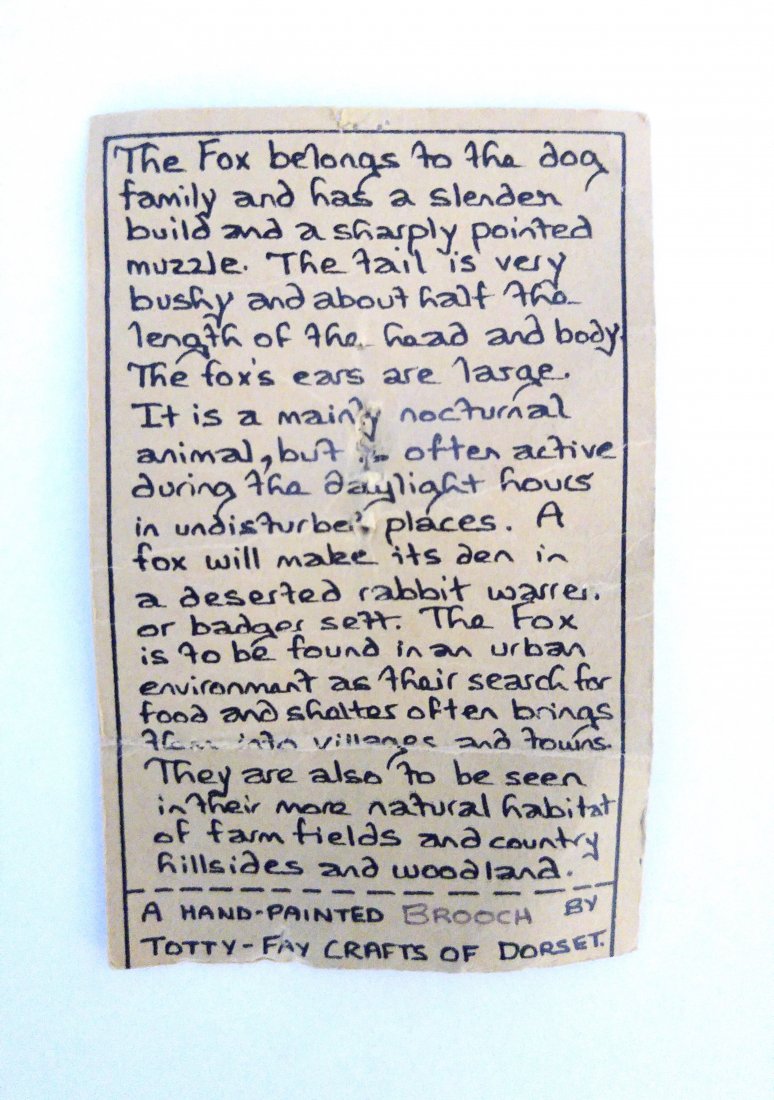 The Fox belongs to the dog
family and has a slender
build and a sharply pointed
muzzle. The tail is very
bushy and about half the
length of the head and body.
The fox's ears are large.
It is a mainly nocturnal
animal, but is often active
during the daylight hours
in undisturbed places. A
fox will make its den in
a deserted rabbit warren
or badger sett. The Fox
is to be found in an urban
environment as their search for
food and shelter often brings
them into villages and towns.
They are also to be seen
in their more natural habitat
of farm fields and country
hillsides and woodland.
A HAND-PAINTED BROOCH BY
TOTTY-FAY CRAFTS OF DORSET.